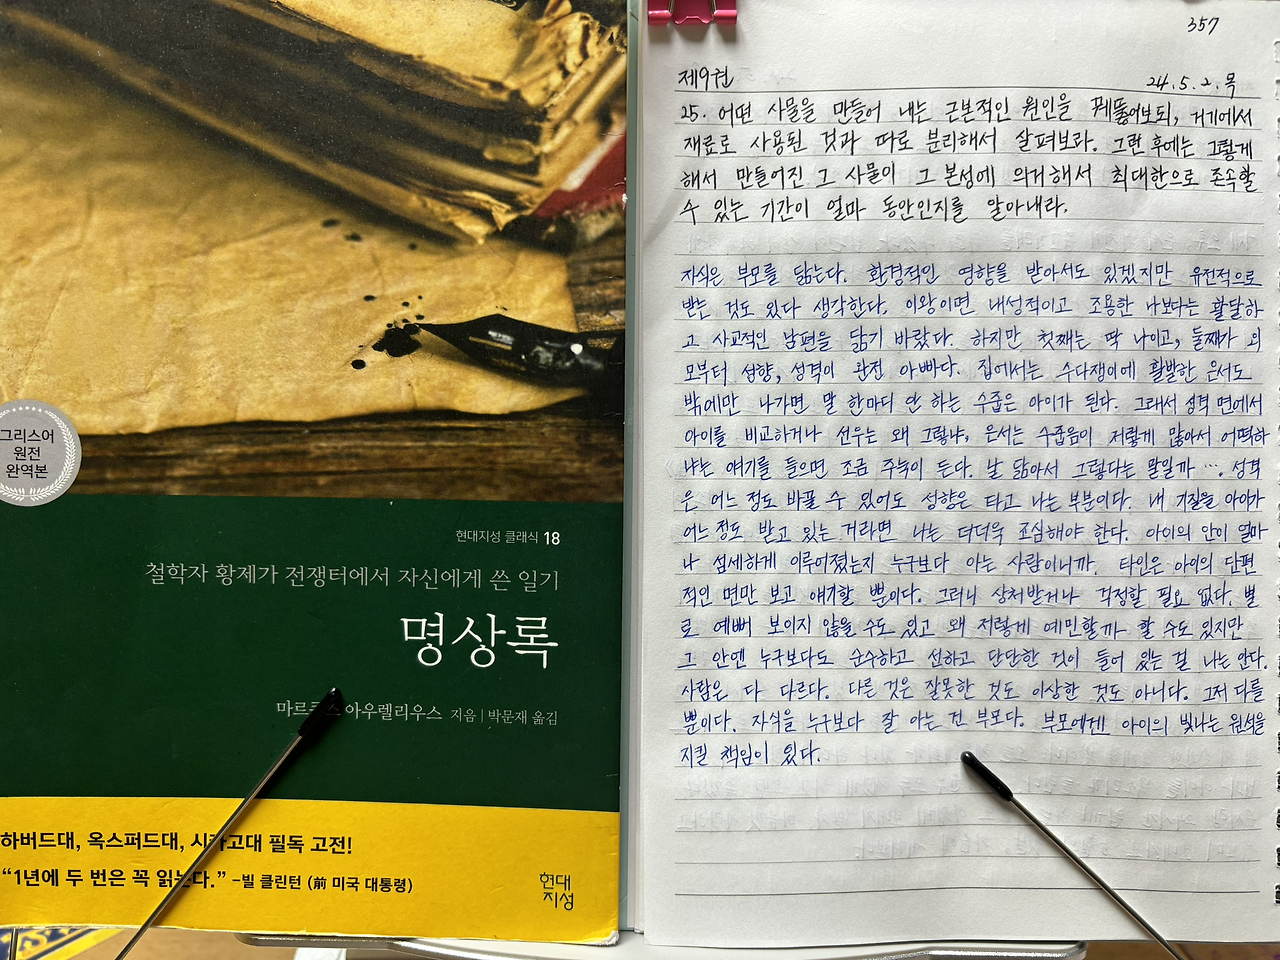 그리스어
원전
완역본
현대지성 클래식 18
철학자 황제가 전쟁터에서 자신에게 쓴 일기
명상록
마르쿠스 아우렐리우스 지음 | 박문재 옮김
하버드대, 옥스퍼드대, 시카고대 필독 고전!
“1년에 두 번은 꼭 읽는다.” –빌 클린턴 (前 미국 대통령)
현대
지성
357
제9권 24.5.2.목
25. 어떤 사물을 만들어 내는 근본적인 원인을 꿰뚫어보되, 거기에서
재료로 사용된 것과 따로 분리해서 살펴보라. 그런 후에는 그렇게
해서 만들어진 그 사물이 그 본성에 의거해서 최대한으로 존속할
수 있는 기간이 얼마 동안인지를 알아내라.
자식은 부모를 닮는다. 환경적인 영향을 받아서도 있겠지만 유전적으로
받는 것도 있다 생각한다. 이왕이면 내성적이고 조용한 나보다는 활달하
고 사교적인 남편을 닮기 바랐다. 하지만 첫째는 딱 나이고, 둘째가 외
모부터 성향, 성격이 완전 아빠다. 집에서는 수다쟁이에 활발한 은서도
밖에만 나가면 말 한마디 안 하는 수줍은 아이가 된다. 그래서 성격 면에서
아이를 비교하거나 선우는 왜 그렇냐, 은서는 수줍음이 저렇게 많아서 어떡하
냐는 얘기를 들으면 조금 주눅이 든다. 날 닮아서 그렇다는 말일까…. 성격
은 어느 정도 바꿀 수 있어도 성향은 타고 나는 부분이다. 내 기질을 아이가
어느 정도 받고 있는 거라면 나는 더더욱 조심해야 한다. 아이의 안이 얼마
나 섬세하게 이루어졌는지 누구보다 아는 사람이니까. 타인은 아이의 단편
적인 면만 보고 얘기할 뿐이다. 그러니 상처받거나 걱정할 필요 없다. 별
로 예뻐 보이지 않을 수도 있고 왜 저렇게 예민할까 할 수도 있지만
그 안엔 누구보다도 순수하고 선하고 단단한 것이 들어 있는 걸 나는 안다.
사람은 다 다르다. 다른 것은 잘못한 것도 이상한 것도 아니다. 그저 다를
뿐이다. 자식을 누구보다 잘 아는 건 부모다. 부모에겐 아이의 빛나는 원석을
지킬 책임이 있다.